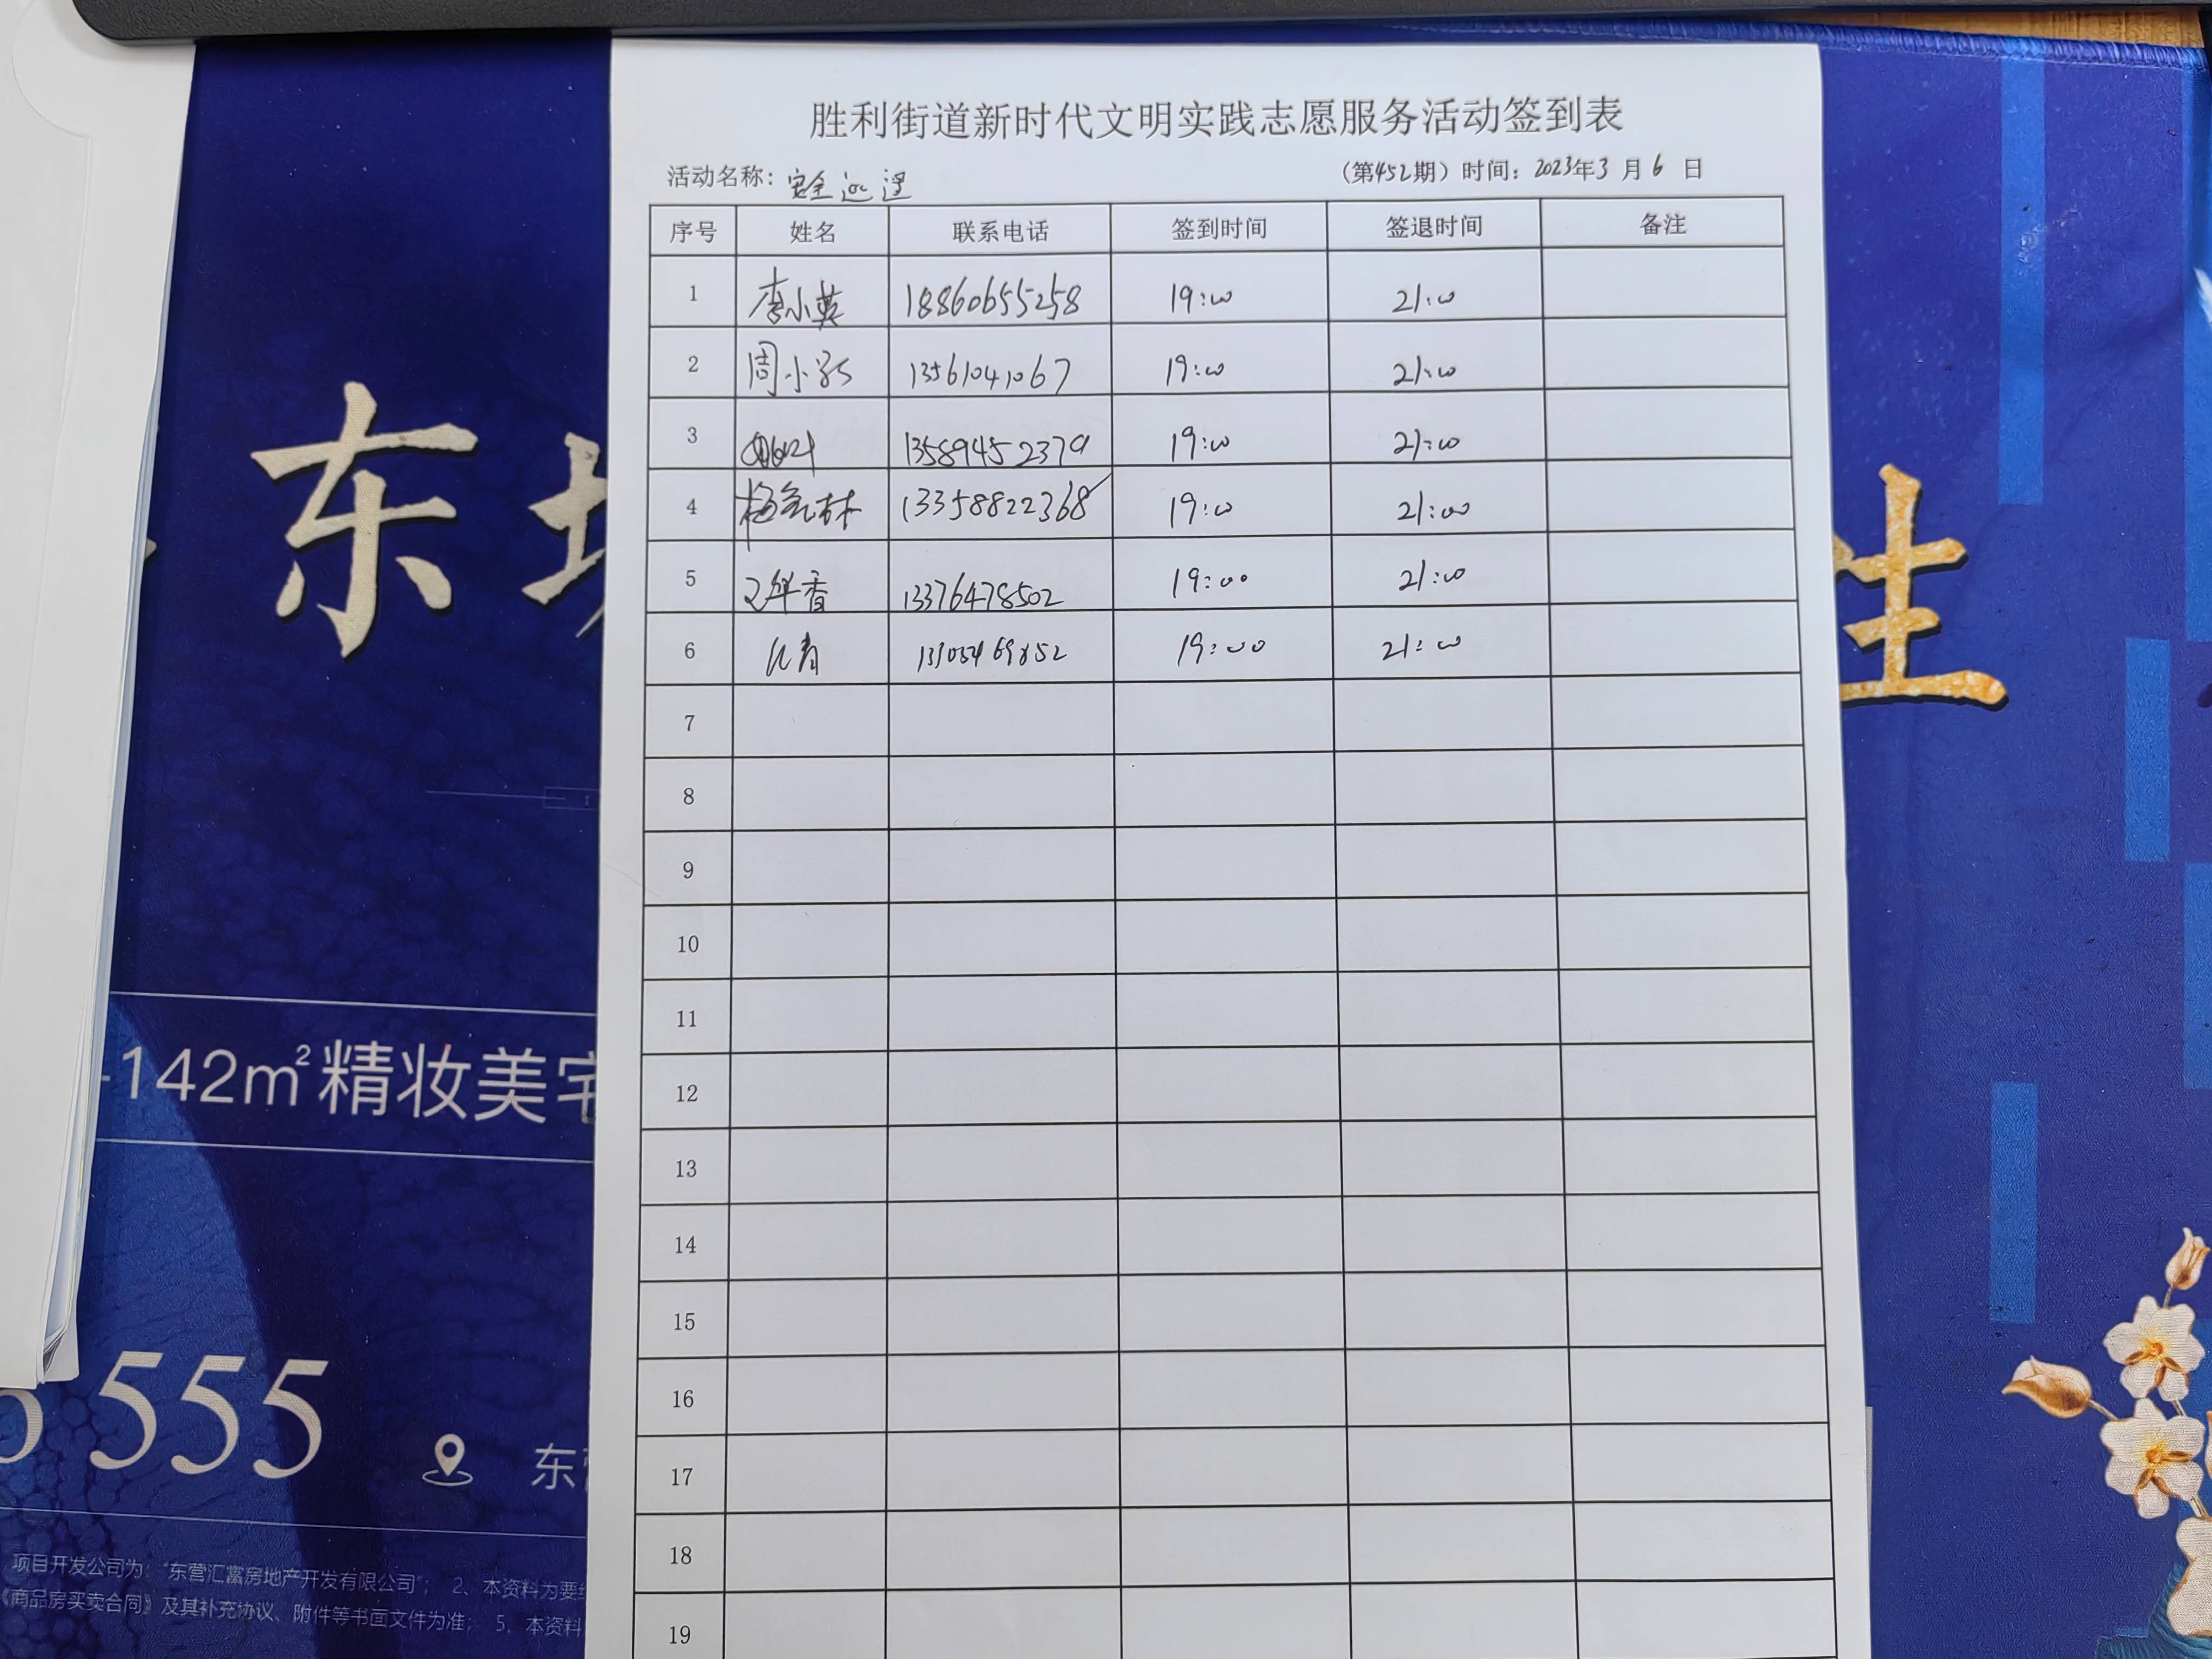 胜利街道新时代文明实践志愿服务活动签到表
活动名称：安全巡逻 （第452期）时间：2023年3月6日
序号 姓名 联系电话 签到时间 签退时间 备注
1 李小英 18860655258 19:00 21:00
2 周小 13561041067 19:00 21:00
3 13589452379 19:00 21:00
4 林 13358822368 19:00 21:00
5 香 13376478502 19:00 21:00
6 19:00 21:00
7
8
9
10
11
12
13
14
15
16
17
18
19
东
生
-142m²精妆美宅
555
东
项目开发公司为："东营汇富房地产开发有限公司"； 2、本资料为要
《商品房买卖合同》及其补充协议、附件等书面文件为准； 5、本资料